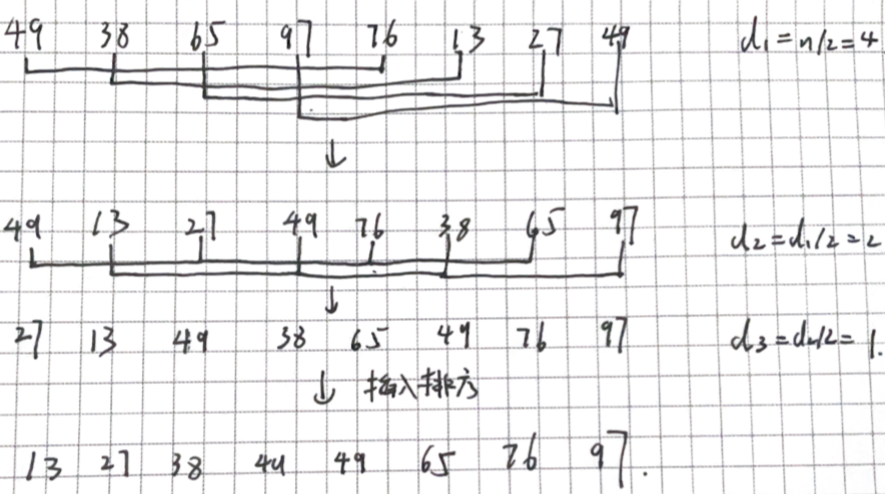 49 38 65 97 76 13 27 49 d₁=n/2=4
↓
49 13 27 49 76 38 65 97 d₂=d₁/2=2
↓
27 13 49 38 65 49 76 97 d₃=d₂/2=1.
↓ 插入排序
13 27 38 49 49 65 76 97.